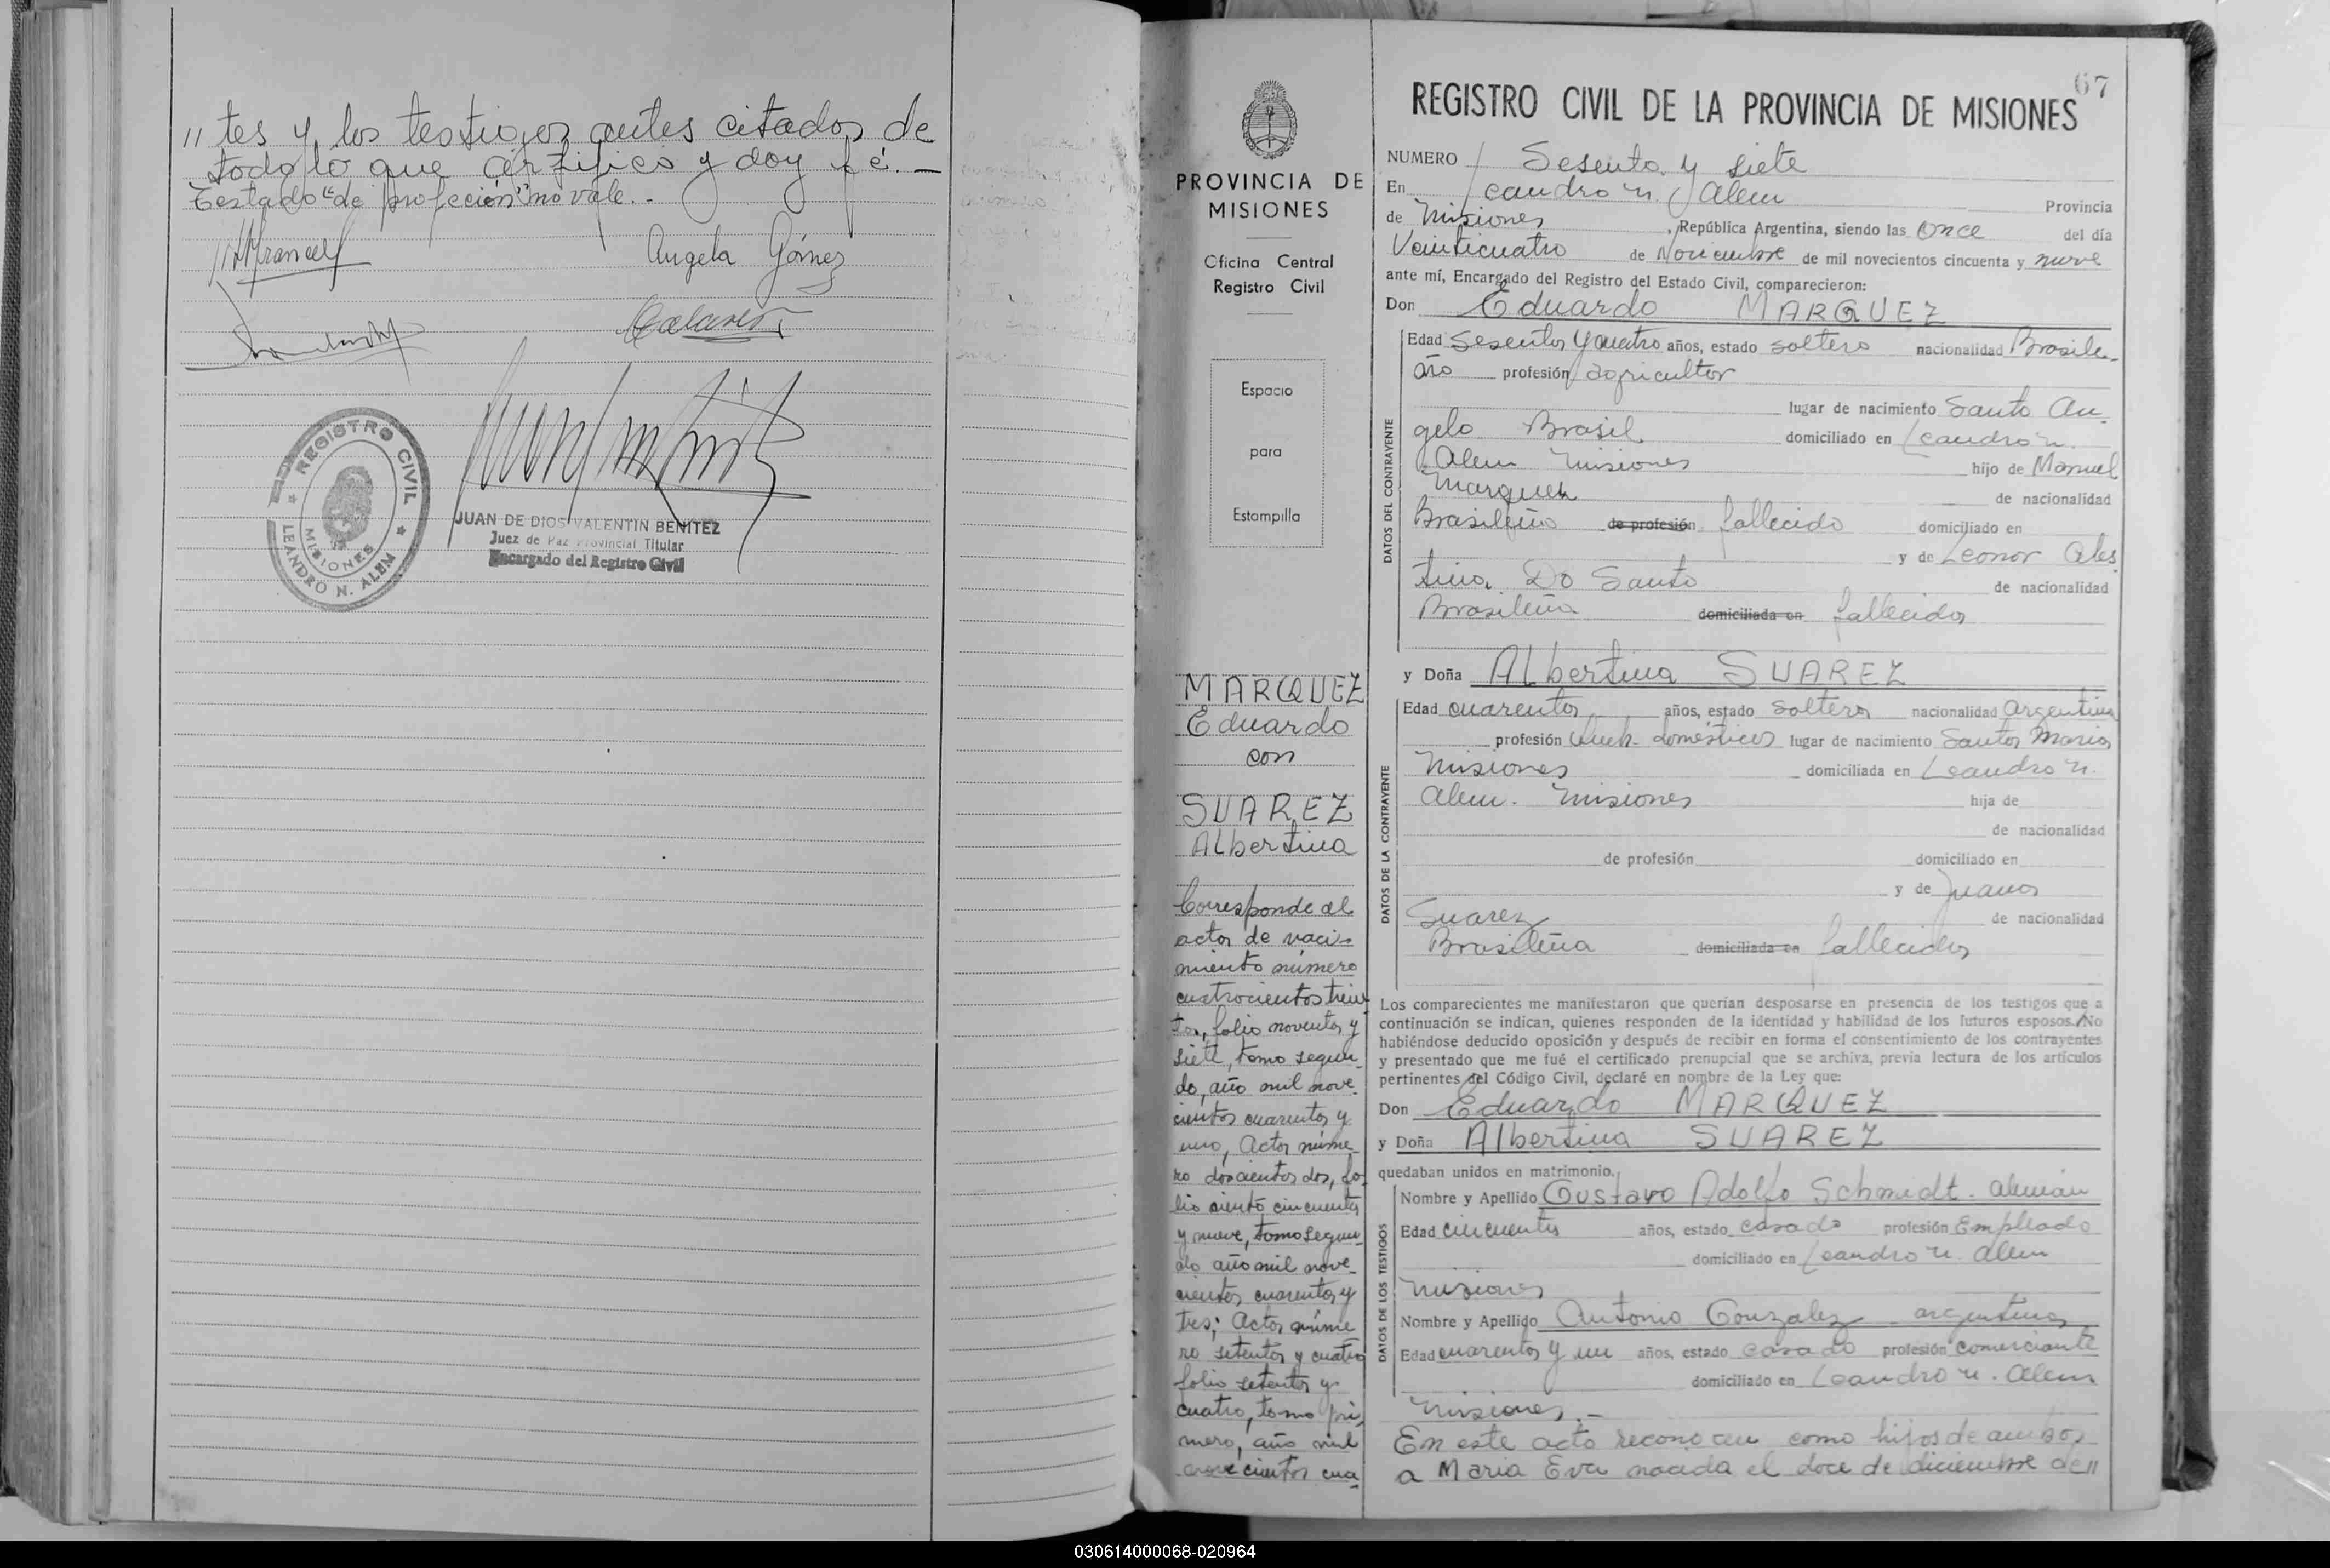 // tes y los testigos antes citados de
todo lo que certifico y doy fé.—
Testado "de profeción" no vale.-
Angela Gómez
REGISTRO CIVIL
MISIONES
LEANDRO N. ALEM
JUAN DE DIOS VALENTIN BENITEZ
Juez de Paz Provincial Titular
Encargado del Registro Civil
PROVINCIA DE
MISIONES
Oficina Central
Registro Civil
Espacio
para
Estampilla
MARQUEZ
Eduardo
con
SUAREZ
Albertina
Corresponde al
acta de naci-
miento número
cuatrocientos trein
ta, folio noventa y
siete, tomo segun
do, año mil nove-
cientos cuarenta y
uno, Acta núme-
ro doscientos dos, fo-
lio ciento cincuenta
y nueve, tomo segun
do año mil nove-
cientos cuarenta y
tres; Acta núme
ro setenta y cuatro
folio setenta y
cuatro, tomo pri-
mero, año mil
novecientos cua-
67
REGISTRO CIVIL DE LA PROVINCIA DE MISIONES
NUMERO Sesenta y siete
En Leandro N. Alem Provincia
de Misiones, República Argentina, siendo las once del día
Veinticuatro de Noviembre de mil novecientos cincuenta y nueve
ante mí, Encargado del Registro del Estado Civil, comparecieron:
Don Eduardo MARQUEZ
DATOS DEL CONTRAYENTE
Edad Sesenta y cuatro años, estado soltero nacionalidad Brasile-
ño profesión agricultor
lugar de nacimiento Santo An-
gelo Brasil domiciliado en Leandro N.
Alem Misiones hijo de Manuel
Marquez de nacionalidad
Brasileño de profesión fallecido domiciliado en
y de Leonor Ales
tina Do Santo de nacionalidad
Brasileña domiciliada en fallecida
y Doña Albertina SUAREZ
DATOS DE LA CONTRAYENTE
Edad cuarenta años, estado soltera nacionalidad argentina
profesión Queh. domésticos lugar de nacimiento Santa Maria
Misiones domiciliada en Leandro N.
Alem. Misiones hija de
de nacionalidad
de profesión domiciliado en
y de Juana
Suarez de nacionalidad
Brasileña domiciliada en fallecida
Los comparecientes me manifestaron que querían desposarse en presencia de los testigos que a
continuación se indican, quienes responden de la identidad y habilidad de los futuros esposos. No
habiéndose deducido oposición y después de recibir en forma el consentimiento de los contrayentes
y presentado que me fué el certificado prenupcial que se archiva, previa lectura de los artículos
pertinentes del Código Civil, declaré en nombre de la Ley que:
Don Eduardo MARQUEZ
y Doña Albertina SUAREZ
quedaban unidos en matrimonio.
DATOS DE LOS TESTIGOS
Nombre y Apellido Gustavo Adolfo Schmidt. alemán
Edad cincuenta años, estado casado profesión Empleado
domiciliado en Leandro N. Alem
Misiones
Nombre y Apellido Antonio Gonzalez argentino
Edad cuarenta y un años, estado casado profesión comerciante
domiciliado en Leandro N. Alem
Misiones.—
En este acto reconocen como hijos de ambos
a Maria Eva nacida el doce de diciembre de//
030614000068-020964